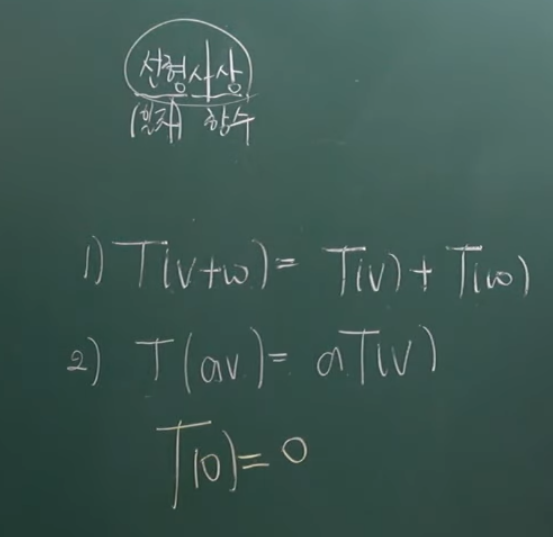 선형사상
(일차) 함수
1) T(v+w) = T(v) + T(w)
2) T(av) = aT(v)
T(0) = 0